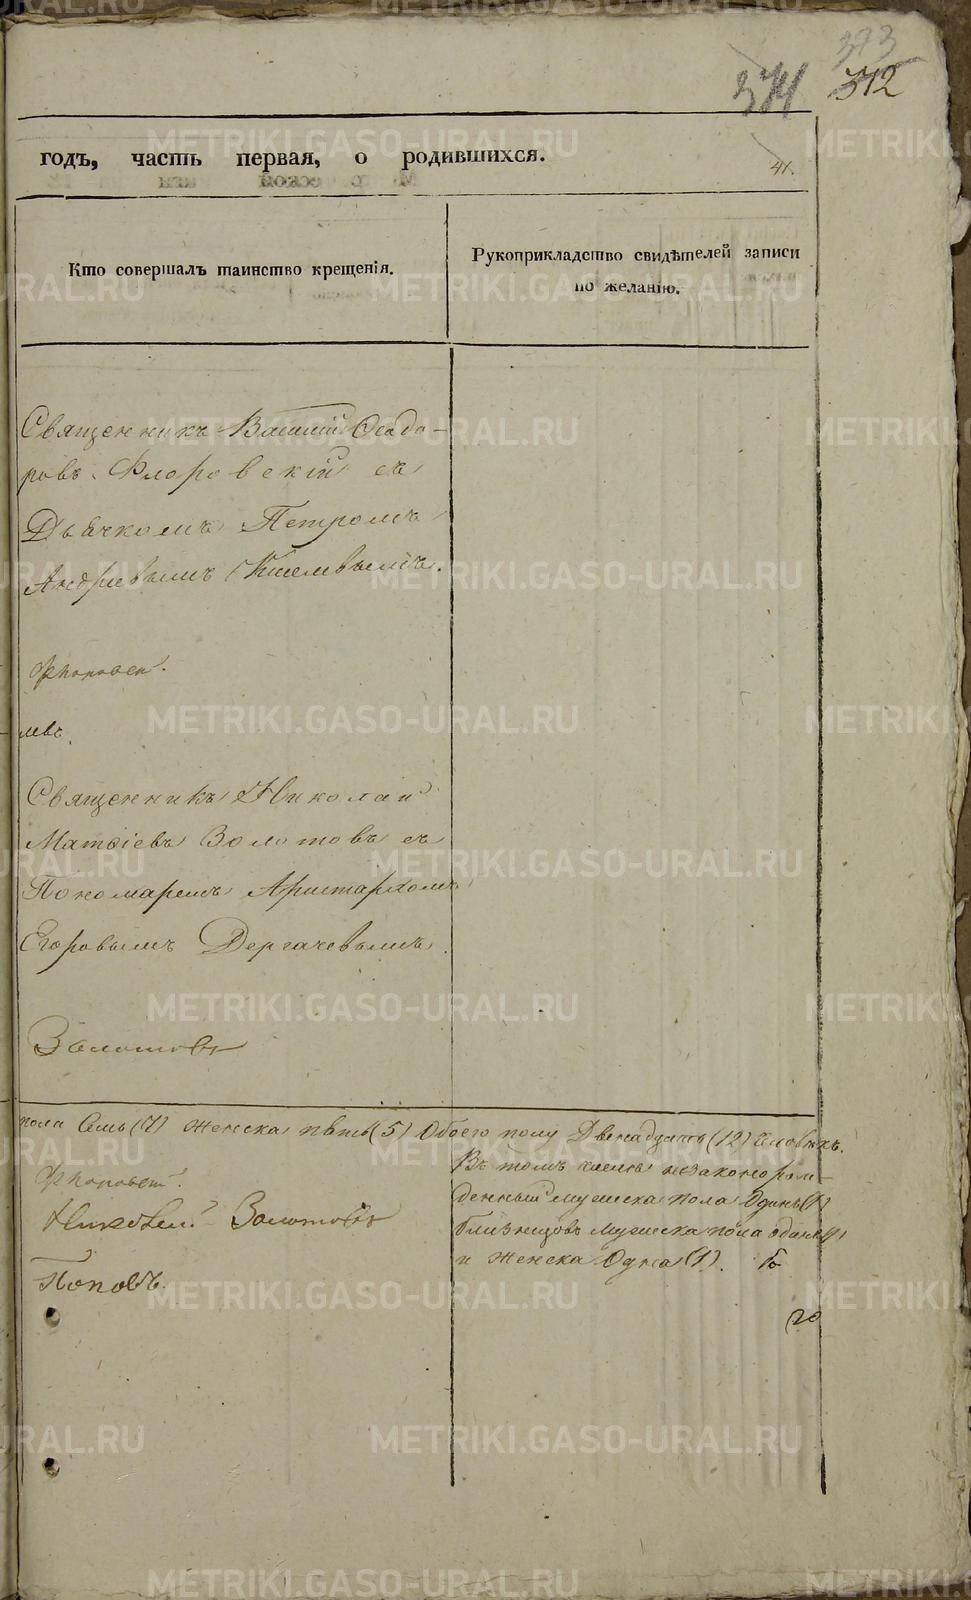 373
374 372
годъ, часть первая, о родившихся.
41.
Кто совершалъ таинство крещенія.
Рукоприкладство свидѣтелей записи
по желанію.
Священникъ Василій Ѳеодо-
ровъ Флоровскій съ
Дьячкомъ Петромъ
Андріевымъ
Священникъ Николай
Матѳіевъ Золотовъ съ
Пономаремъ Аристархомъ
Егоровымъ Дергачевымъ.
Золотовъ
пола Семь (7) Женска пять (5) Обоего полу Двенадцать (12) человѣкъ.
Въ томъ числѣ незаконорож-
денный мужеска пола Одинъ (1)
близнецовъ мужеска пола одинъ (1)
и женска Одна (1).
Николай Золотовъ
Поповъ.
METRIKI.GASO-URAL.RU